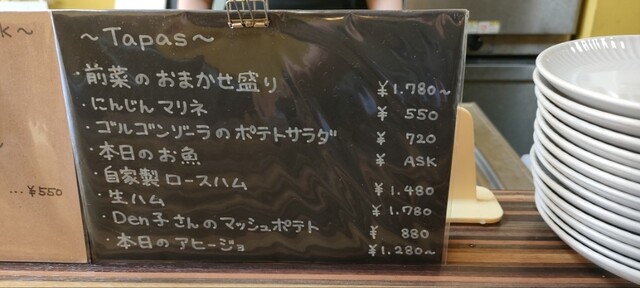 k～
～Tapas～
・前菜のおまかせ盛り ¥1.780～
・にんじんマリネ ¥550
・ゴルゴンゾーラのポテトサラダ ¥720
・本日のお魚 ¥ASK
・自家製ロースハム ¥1.480
・生ハム ¥1.780
・Den子さんのマッシュポテト ¥880
・本日のアヒージョ ¥1.280～
...¥550